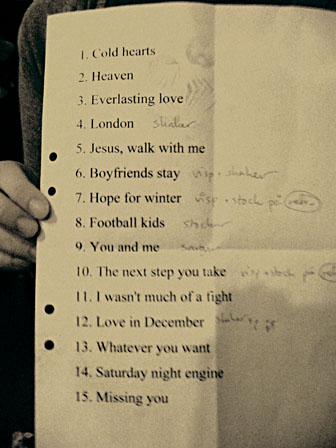 1. Cold hearts
2. Heaven
3. Everlasting love
4. London
5. Jesus, walk with me
6. Boyfriends stay visp + shaker
7. Hope for winter visp + stock på
8. Football kids
9. You and me
10. The next step you take visp + stock på
11. I wasn't much of a fight
12. Love in December
13. Whatever you want
14. Saturday night engine
15. Missing you